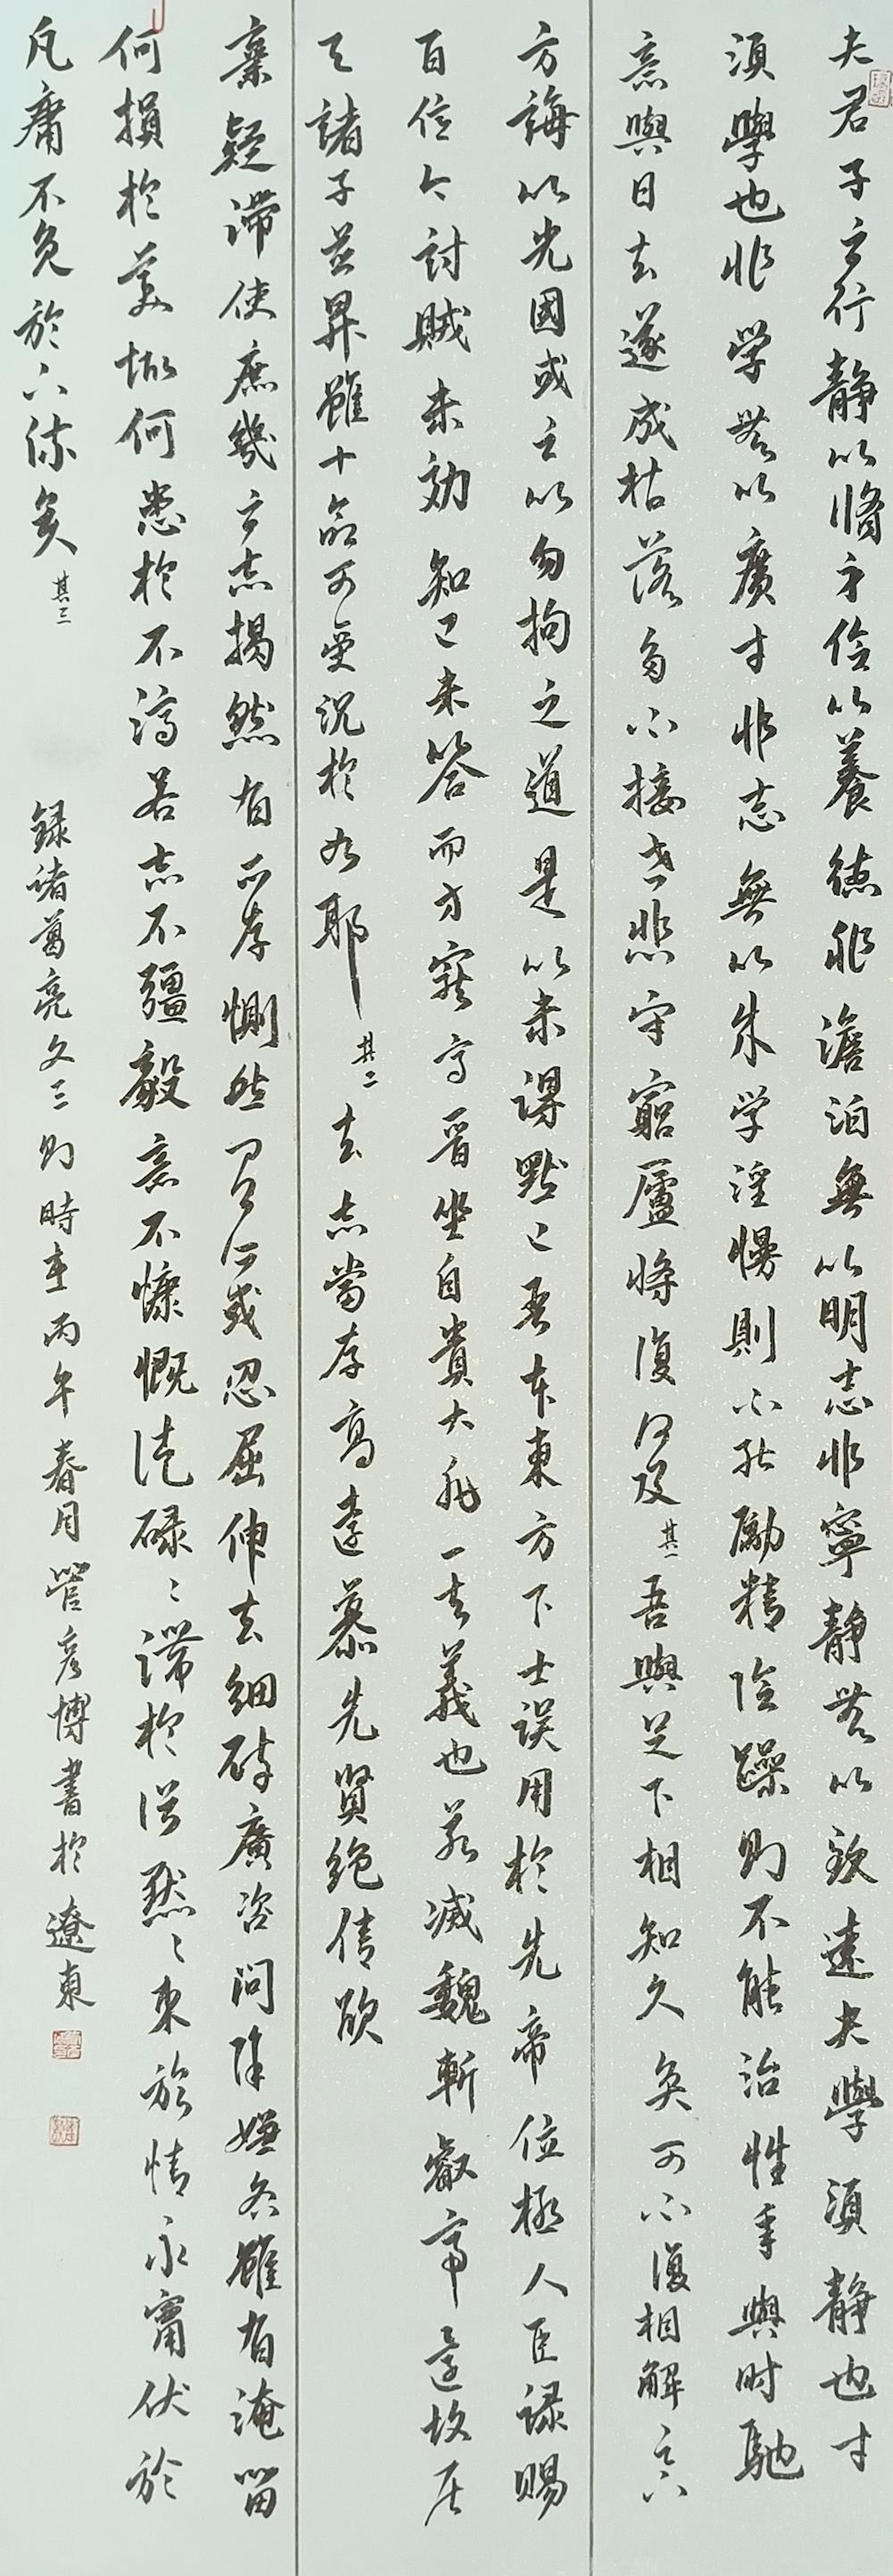 夫君子之行静以脩身儉以養德非澹泊無以明志非寧静無以致遠夫學須静也才
須學也非学無以廣才非志無以成学淫慢則不能勵精险躁则不能治性年與时馳
意與日去遂成枯落多不接世悲守窮廬将復何及其一吾與足下相知久矣可不復相解足下
方誨以光國戒之以勿拘之道是以未得默已吾本東方下士误用於先帝位極人臣禄賜
百億今討賊未効知己未答而方寵齊晋坐自貴大非其義也若滅魏斬叡帝還故居
與諸子並昇雖十命可受况於九耶其二夫志當存高遠慕先賢絶情欲
棄疑滞使庶幾之志揭然有所存惻然有所感忍屈伸去細碎廣咨问除嫌吝雖有淹留
何損於美趣何患於不濟若志不彊毅意不慷慨徒碌碌滯於俗默默束於情永竄伏於
凡庸不免於下流矣其三
録诸葛亮文三则時在丙午春月管彦博書於遼東